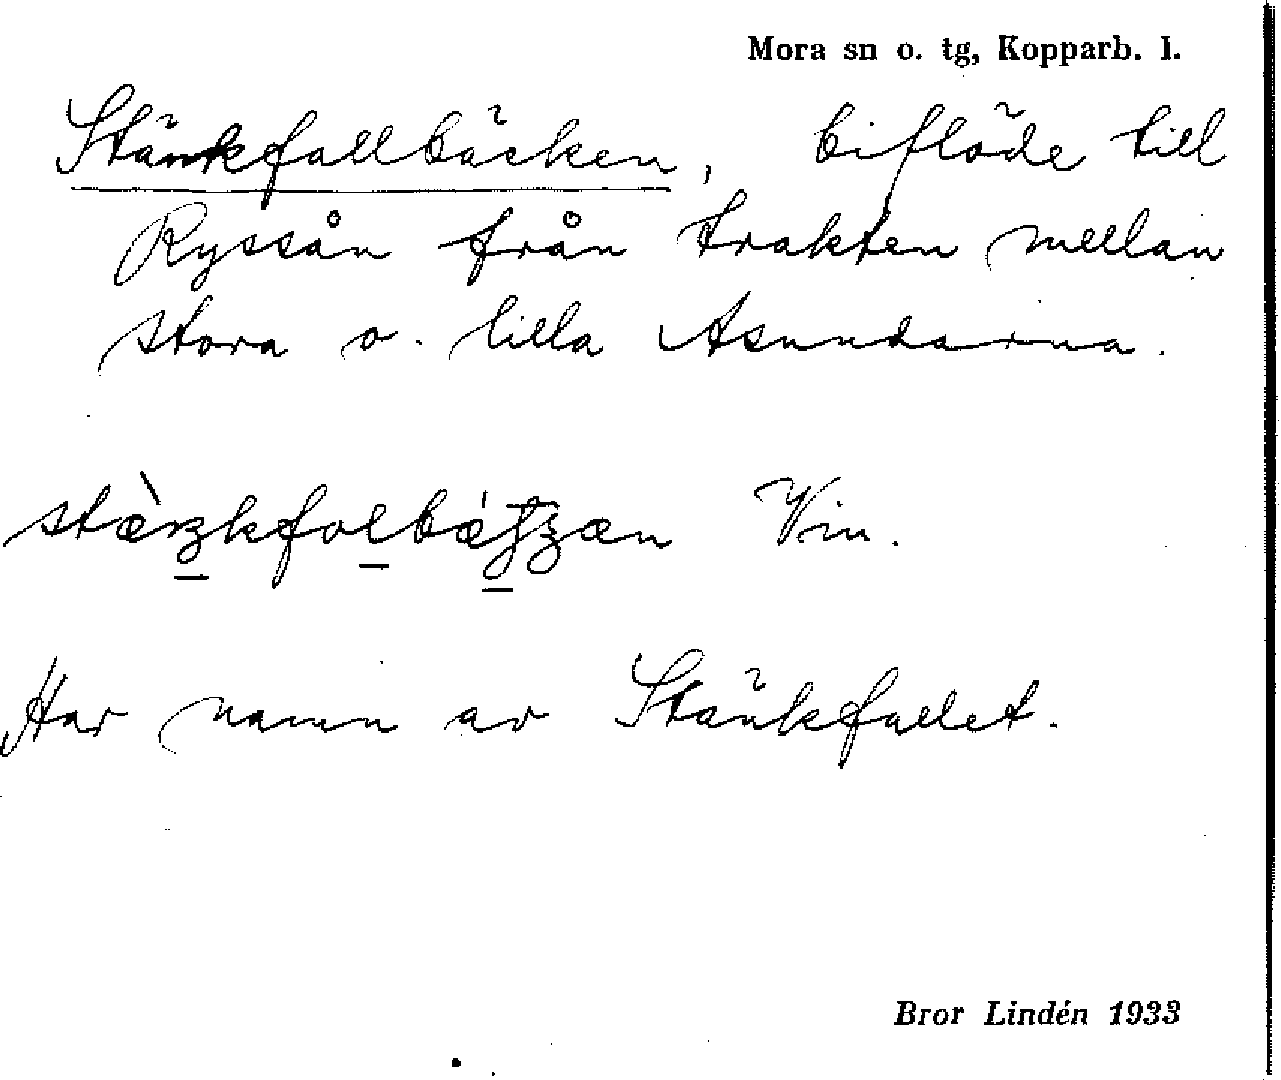 Mora sn o. tg, Kopparb. l.
Stänkfallbäcken, biflöde till
Ryssån från trakten mellan
stora o. lilla Asundarna.
Vin.
Har namn av Stänkfallet.
Bror Lindén 1933